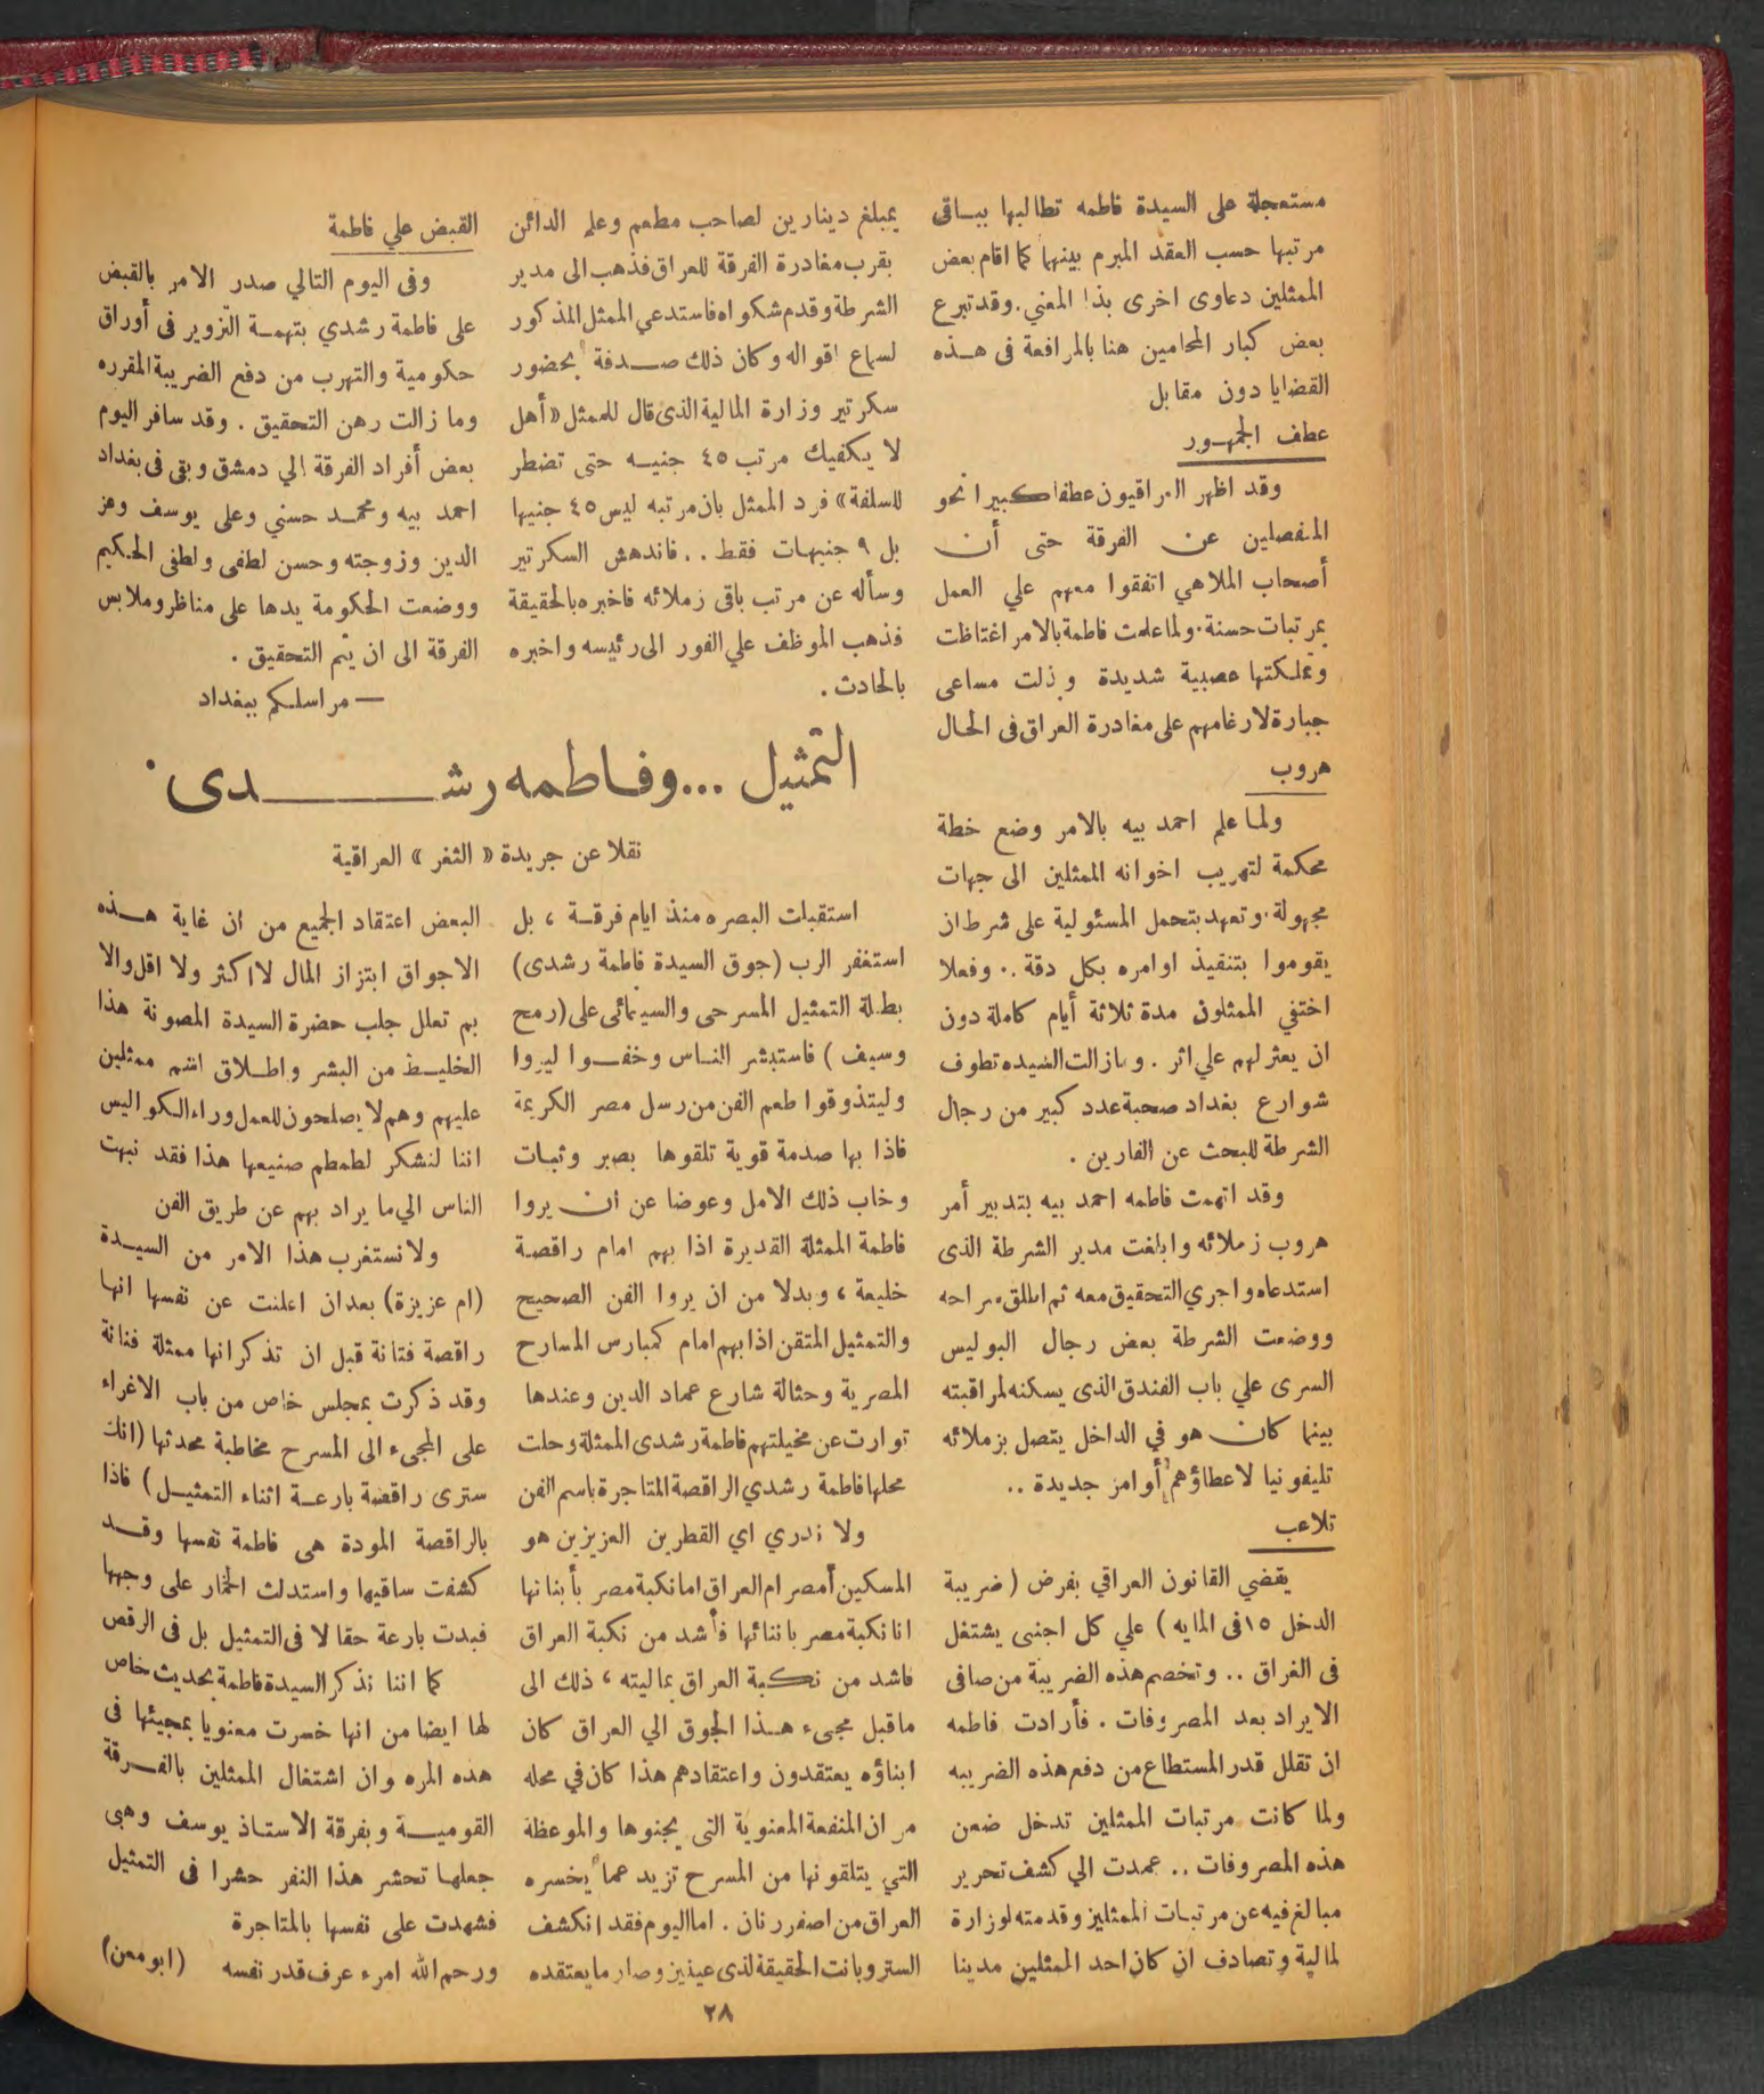 مستعجلة على السيدة فاطمه تطالبها ببـاقى
مرتبها حسب العقد المبرم بينهما كما اقام بعض
الممثلين دعاوى اخرى بذا المعني. وقد تبرع
بعض كبار المحامين هنا بالمرافعة فى هـذه
القضايا دون مقابل
عطف الجمهور
وقد اظهر العراقيون عطفا كبيرا نحو
المنفصلين عن الفرقة حتى أن
أصحاب الملاهي اتفقوا معهم علي العمل
بمرتبات حسنة. ولما علمت فاطمة بالامر اغتاظت
وتملكتها عصبية شديدة وبذلت مساعى
جبارة لارغامهم على مغادرة العراق فى الحال
هروب
ولما علم احمد بيه بالامر وضع خطة
محكمة لتهريب اخوانه الممثلين الى جهات
مجهولة. وتعهد بتحمل المسئولية على شرط ان
يقوموا بتنفيذ اوامره بكل دقة .. وفعلا
اختفي الممثلون مدة ثلاثة أيام كاملة دون
ان يعثر لهم علي اثر . ومازالت السيده تطوف
شوارع بغداد صحبة عدد كبير من رجال
الشرطة للبحث عن الفارين .
وقد اتهمت فاطمه احمد بيه بتدبير أمر
هروب زملائه وابلغت مدير الشرطة الذى
استدعاه واجري التحقيق معه ثم اطلق سراحه
ووضعت الشرطة بعض رجال البوليس
السرى علي باب الفندق الذى يسكنه لمراقبته
بينما كان هو في الداخل يتصل بزملائه
تليفونيا لاعطاؤهم أوامر جديدة ..
تلاعب
يقضي القانون العراقي بفرض ( ضريبة
الدخل ١٥ فى المايه ) علي كل اجنبى يشتغل
فى العراق .. وتخصم هذه الضريبة من صافى
الايراد بعد المصروفات . فأرادت فاطمه
ان تقلل قدر المستطاع من دفع هذه الضريبه
ولما كانت مرتبات الممثلين تدخل ضمن
هذه المصروفات .. عمدت الي كشف تحرير
مبالغ فيه عن مرتبات الممثلين وقدمته لوزارة
لمالية وتصادف ان كان احد الممثلين مدينا
بمبلغ دينارين لصاحب مطعم وعلم الدائن
بقرب مغادرة الفرقة للعراق فذهب الى مدير
الشرطة وقدم شكواه فاستدعي الممثل المذكور
لسماع اقواله وكان ذلك صـدفة بحضور
سكرتير وزارة المالية الذى قال للممثل «أهل
لا يكفيك مرتب ٤٥ جنيـه حتى تضطر
للسلفة» فرد الممثل بان مرتبه ليس ٤٥ جنيها
بل ٩ جنيهات فقط .. فاندهش السكرتير
وسأله عن مرتب باقى زملائه فاخبره بالحقيقة
فذهب الموظف علي الفور الى رئيسه واخبره
بالحادث .
القبض علي فاطمة
وفى اليوم التالي صدر الامر بالقبض
على فاطمة رشدي بتهمـة التزوير فى أوراق
حكومية والتهرب من دفع الضريبة المقرره
وما زالت رهن التحقيق . وقد سافر اليوم
بعض أفراد الفرقة الي دمشق وبقى فى بغداد
احمد بيه ومحمـد حسني وعلى يوسف وعز
الدين وزوجته وحسن لطفى ولطفى الحكيم
ووضعت الحكومة يدها على مناظر وملابس
الفرقة الى ان يتم التحقيق .
— مراسلكم ببغداد
التمثيل ... وفـاطمه رشـــدى .
نقلا عن جريدة « الثغر » العراقية
استقبلت البصره منذ ايام فرقـة ، بل
استغفر الرب (جوق السيدة فاطمة رشدى)
بطلة التمثيل المسرحى والسينمائى على (رمح
وسيف ) فاستبشر النـاس وخفـوا ليروا
وليتذوقوا طعم الفن من رسل مصر الكريمة
فاذا بها صدمة قوية تلقوها بصبر وثبات
وخاب ذلك الامل وعوضا عن ان يروا
فاطمة الممثلة القديرة اذا بهم امام راقصة
خليعة ، وبدلا من ان يروا الفن الصحيح
والتمثيل المتقن اذا بهم امام كمبارس المسارح
المصرية وحثالة شارع عماد الدين وعندها
توارت عن مخيلتهم فاطمة رشدى الممثلة وحلت
محلها فاطمة رشدي الراقصة المتاجرة باسم الفن
ولا ندري اي القطرين العزيزين هو
المسكين أمصر ام العراق اما نكبة مصر بأبنائها
انا نكبة مصر بابنائها فأشد من نكبة العراق
فاشد من نكبة العراق بماليته ، ذلك الى
ماقبل مجىء هـذا الجوق الي العراق كان
ابناؤه يعتقدون واعتقادهم هذا كان في محله
من ان المنفعة المعنوية التى يجنوها والموعظة
التي يتلقونها من المسرح تزيد عما يخسره
العراق من اصفر رنان . اما اليوم فقد انكشف
الستر وبانت الحقيقة لذى عينين وصار مايعتقده
البعض اعتقاد الجميع من ان غاية هـذه
الاجواق ابتزاز المال لا اكثر ولا اقل والا
بم تعلل جلب حضرة السيدة المصونة هذا
الخليـط من البشر واطـلاق اسم ممثلين
عليهم وهم لا يصلحون للعمل وراء الكواليس
اننا لنشكر لطمطم صنيعها هذا فقد نبهت
الناس الي ما يراد بهم عن طريق الفن
ولا نستغرب هذا الامر من السيـدة
(ام عزيزة) بعد ان اعلنت عن نفسها انها
راقصة فتانة قبل ان تذكر انها ممثلة فنانة
وقد ذكرت بمجلس خاص من باب الاغراء
على المجىء الى المسرح مخاطبة محدثها (انك
سترى راقصة بارعـة اثناء التمثيـل) فاذا
بالراقصة المودة هى فاطمة نفسها وقـد
كشفت ساقيها واستدلت الخمار على وجهها
فبدت بارعة حقا لا فى التمثيل بل فى الرقص
كما اننا نذكر السيدة فاطمة بحديث خاص
لها ايضا من انها خسرت معنويا بمجيئها فى
هذه المره وان اشتغال الممثلين بالفـرقة
القوميـة وبفرقة الاستاذ يوسف وهبى
جعلها تحشر هذا النفر حشرا فى التمثيل
فشهدت على نفسها بالمتاجرة
ورحم الله امرء عرف قدر نفسه (ابو معن)
٢٨